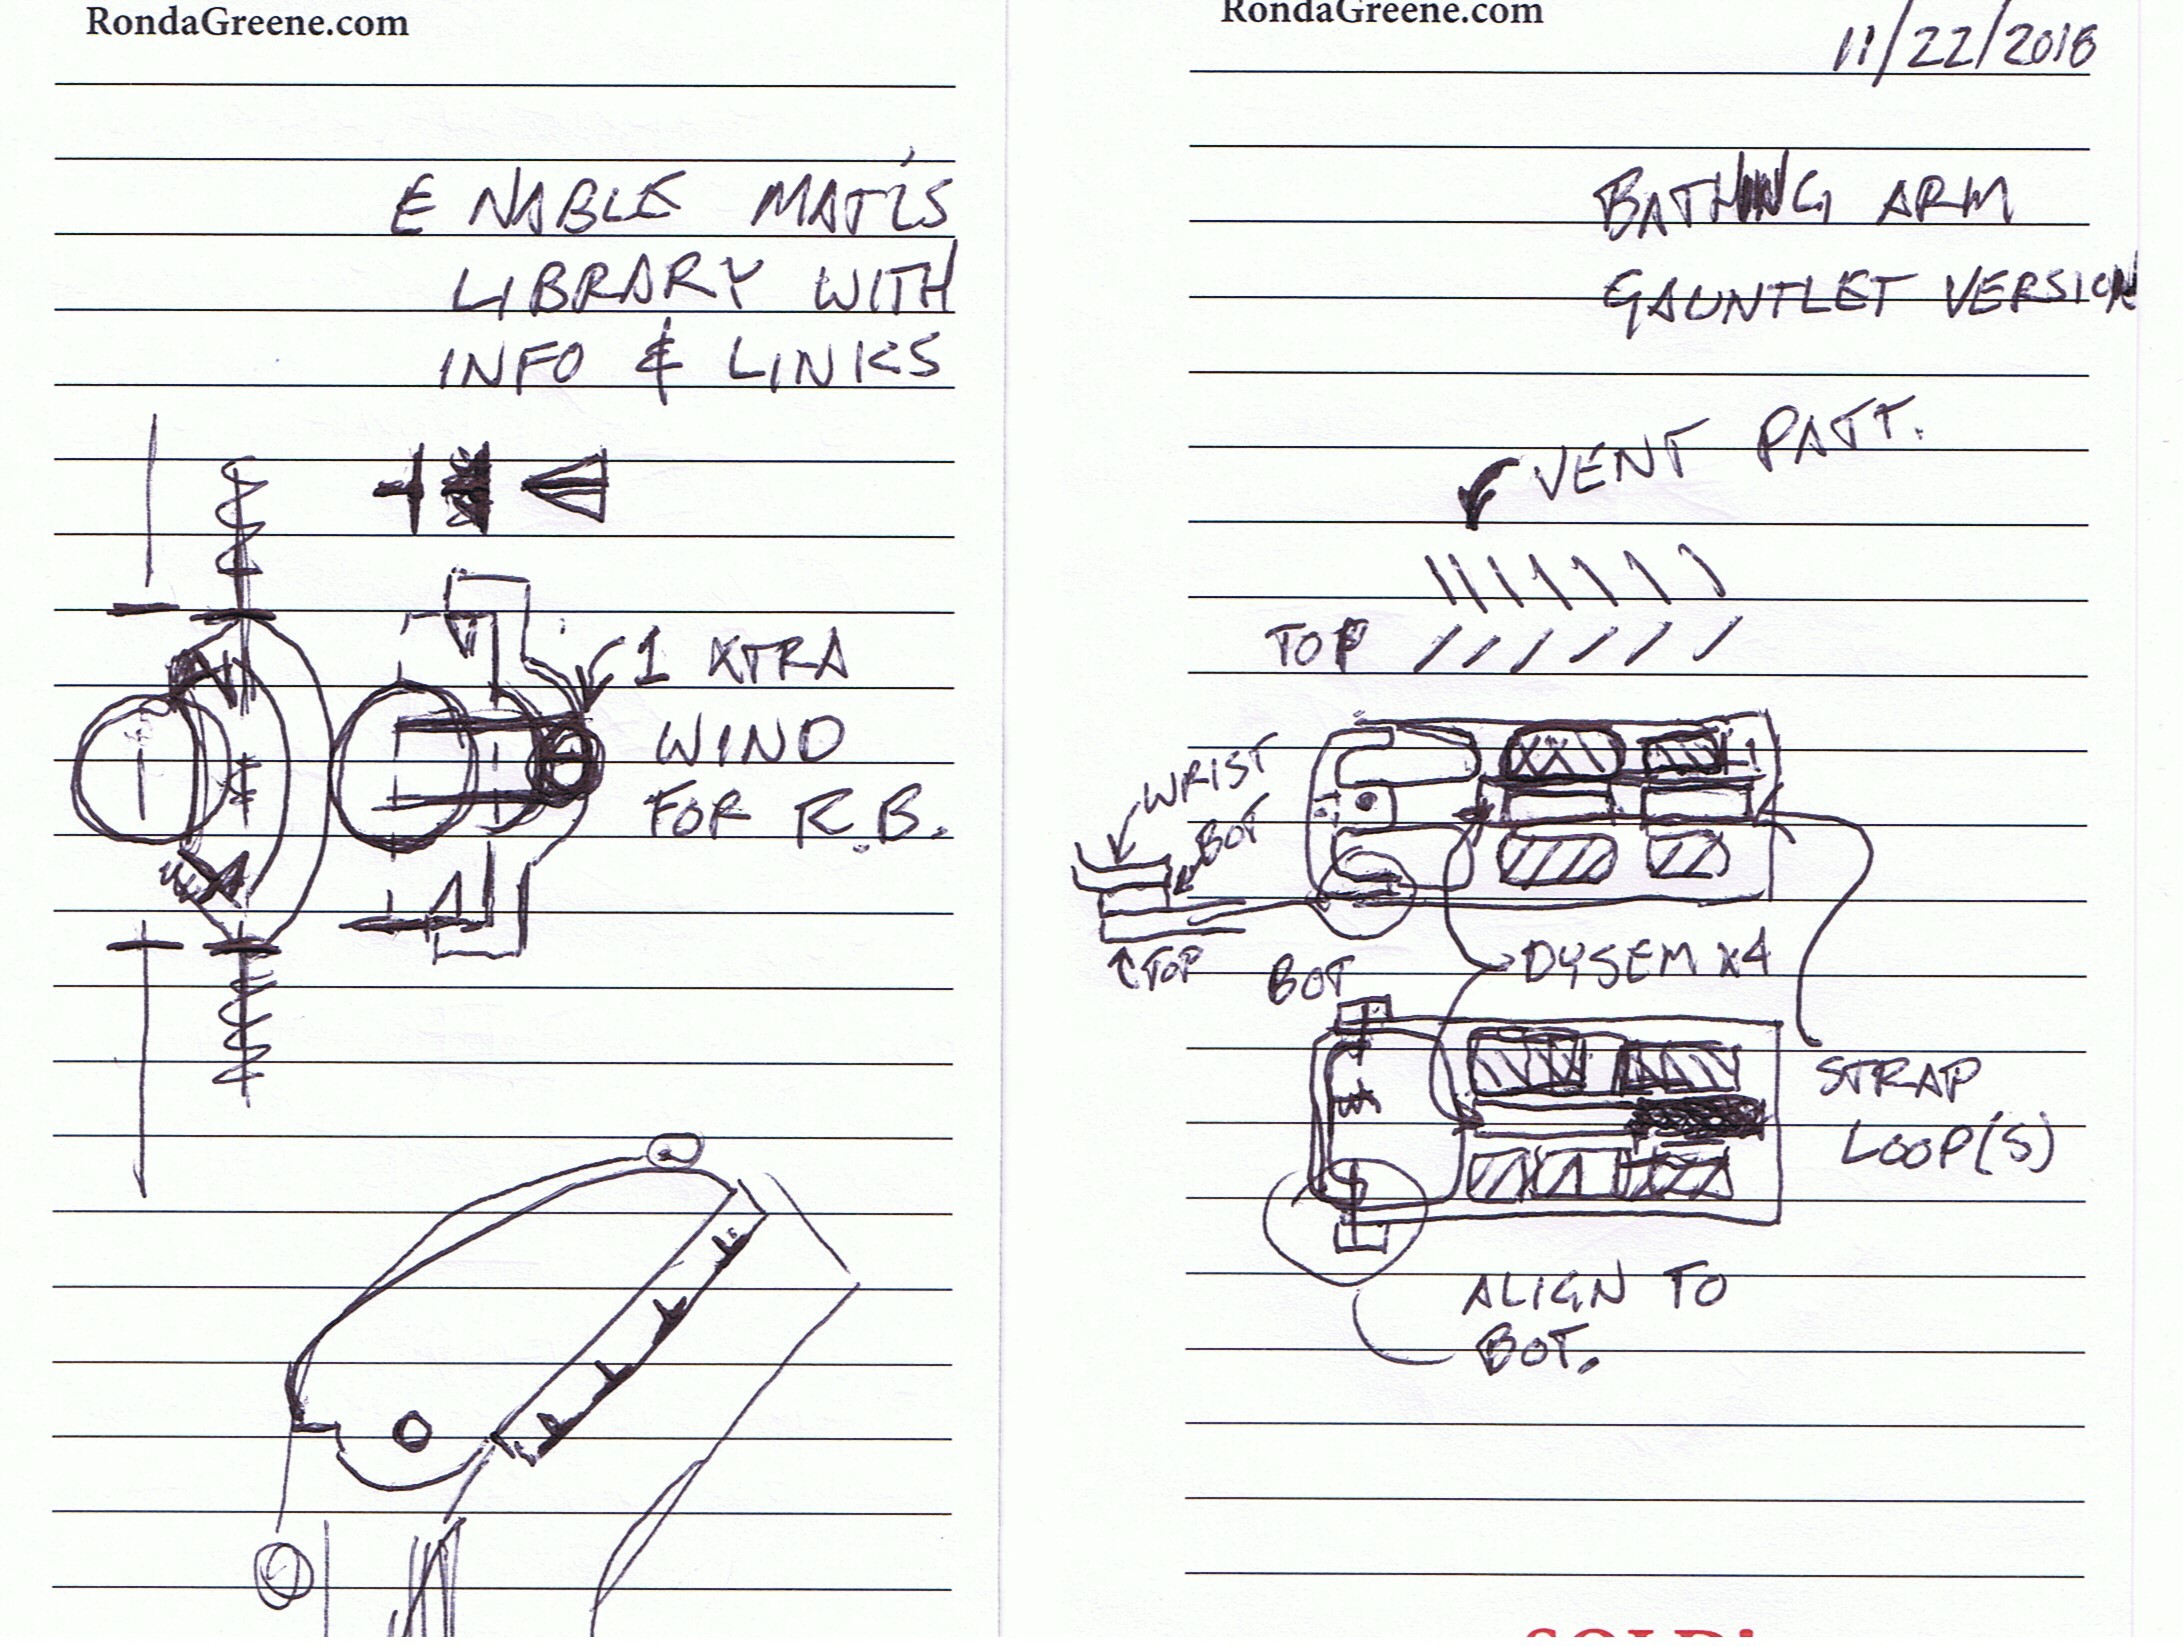 RondaGreene.com
E NABLE MAT'LS
LIBRARY WITH
INFO & LINKS
1 XTRA
WIND
FOR R.B.
RondaGreene.com
11/22/2018
BATHING ARM
GAUNTLET VERSION
VENT PATT.
TOP
WRIST
BOT
TOP
DYSEM x4
BOT
STRAP
LOOP(S)
ALIGN TO
BOT.